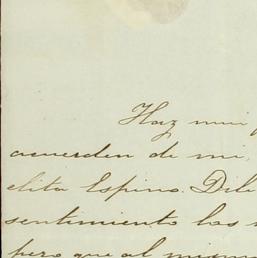 Haz mui
acuerden de mi,
elita Espino. Dile
sentimiento las
pero que al mismo